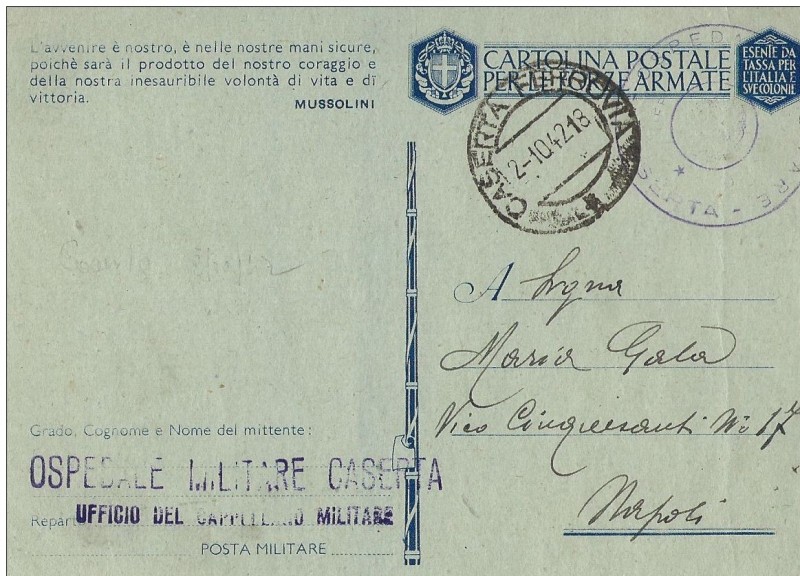 L'avvenire è nostro, è nelle nostre mani sicure,
poichè sarà il prodotto del nostro coraggio e
della nostra inesauribile volontà di vita e di
vittoria.
MUSSOLINI
CARTOLINA POSTALE
PER LE FORZE ARMATE
ESENTE DA
TASSA PER
L'ITALIA E
SVE COLONIE
CASERTA FERROVIA
2-10.42.18
SERTA - 
A Sigra
Maria Galà
Vico Cinquesanti No 17
Napoli
Grado, Cognome e Nome del mittente:
OSPEDALE MILITARE CASERTA
UFFICIO DEL CAPPELLANO MILITARE
POSTA MILITARE